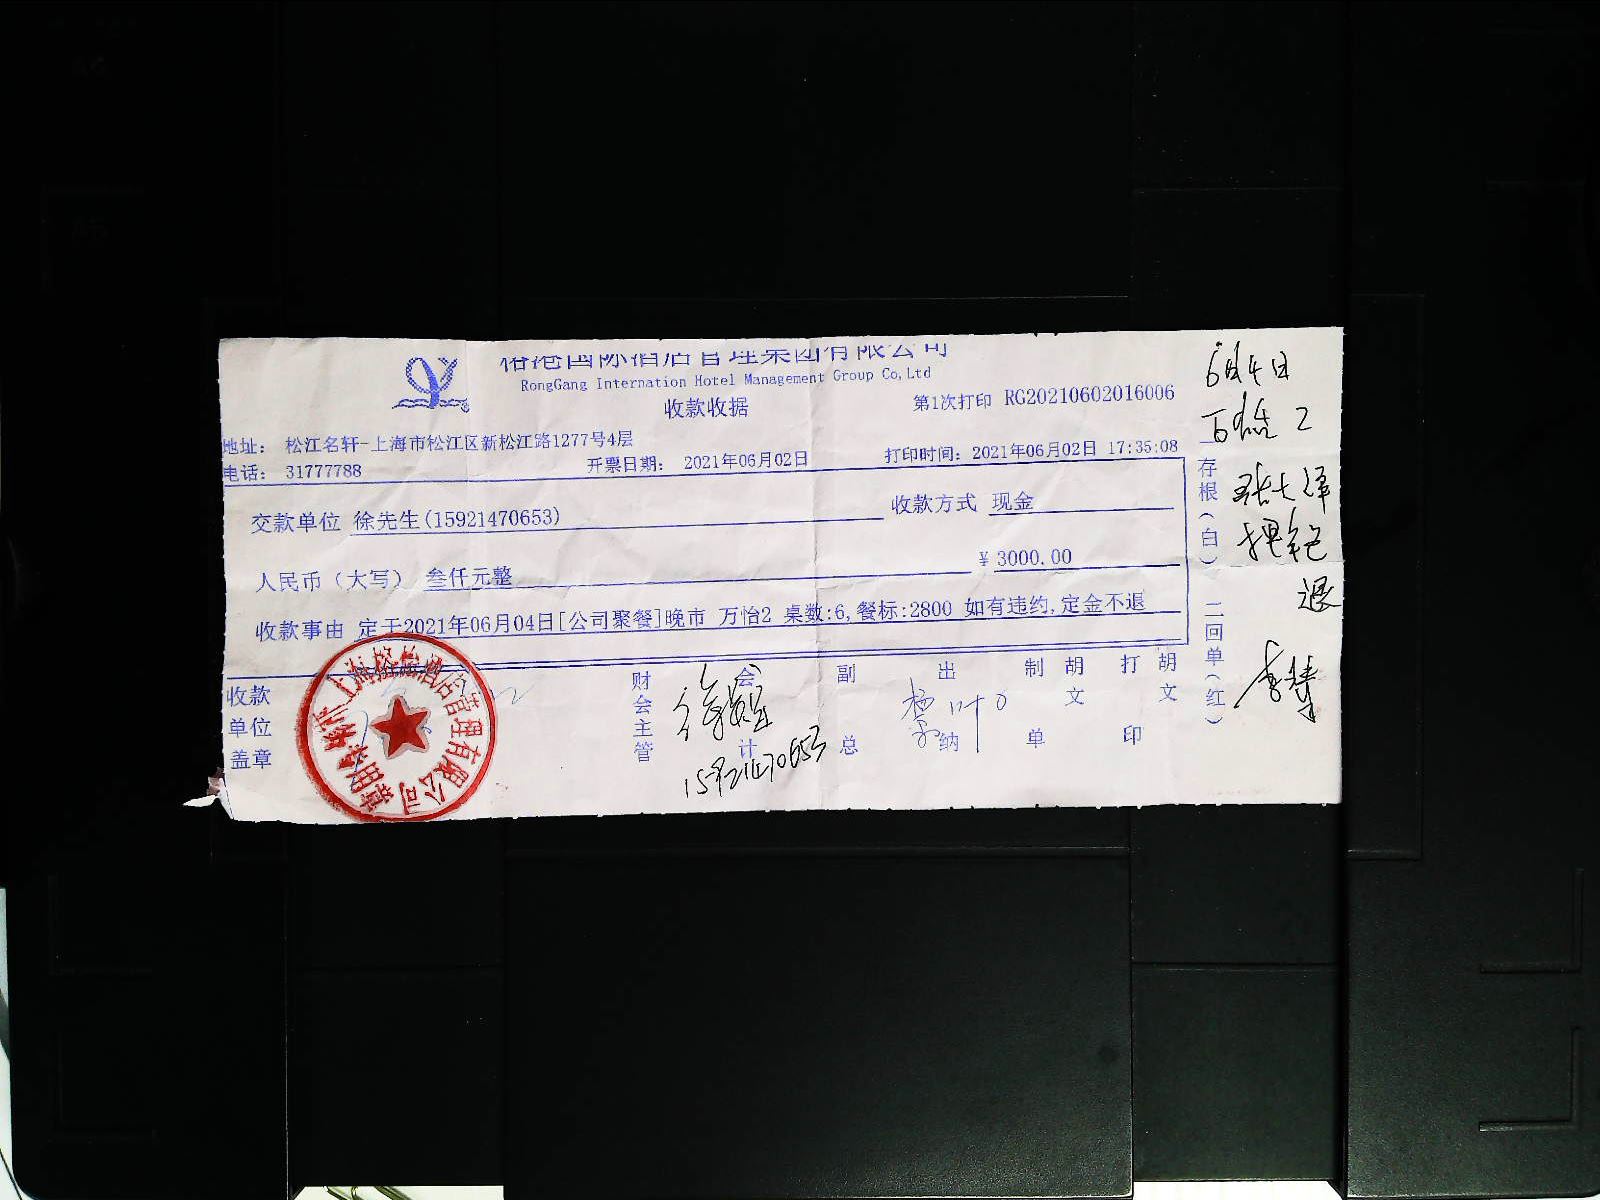 榕港国际酒店管理集团有限公司
RongGang Internation Hotel Management Group Co,Ltd
收款收据
第1次打印 RG20210602016006
地址： 松江名轩-上海市松江区新松江路1277号4层
电话： 31777788
开票日期： 2021年06月02日
打印时间：2021年06月02日 17:35:08
交款单位 徐先生(15921470653)
收款方式 现金
人民币（大写） 叁仟元整
¥ 3000.00
收款事由 定于2021年06月04日[公司聚餐]晚市 万怡2 桌数:6,餐标:2800 如有违约,定金不退
收款单位盖章
财会主管
会计
副总
出纳
制单
胡文
打印
胡文
15921470653
存根（白）
二回单（红）
6月4日
万怡2
退